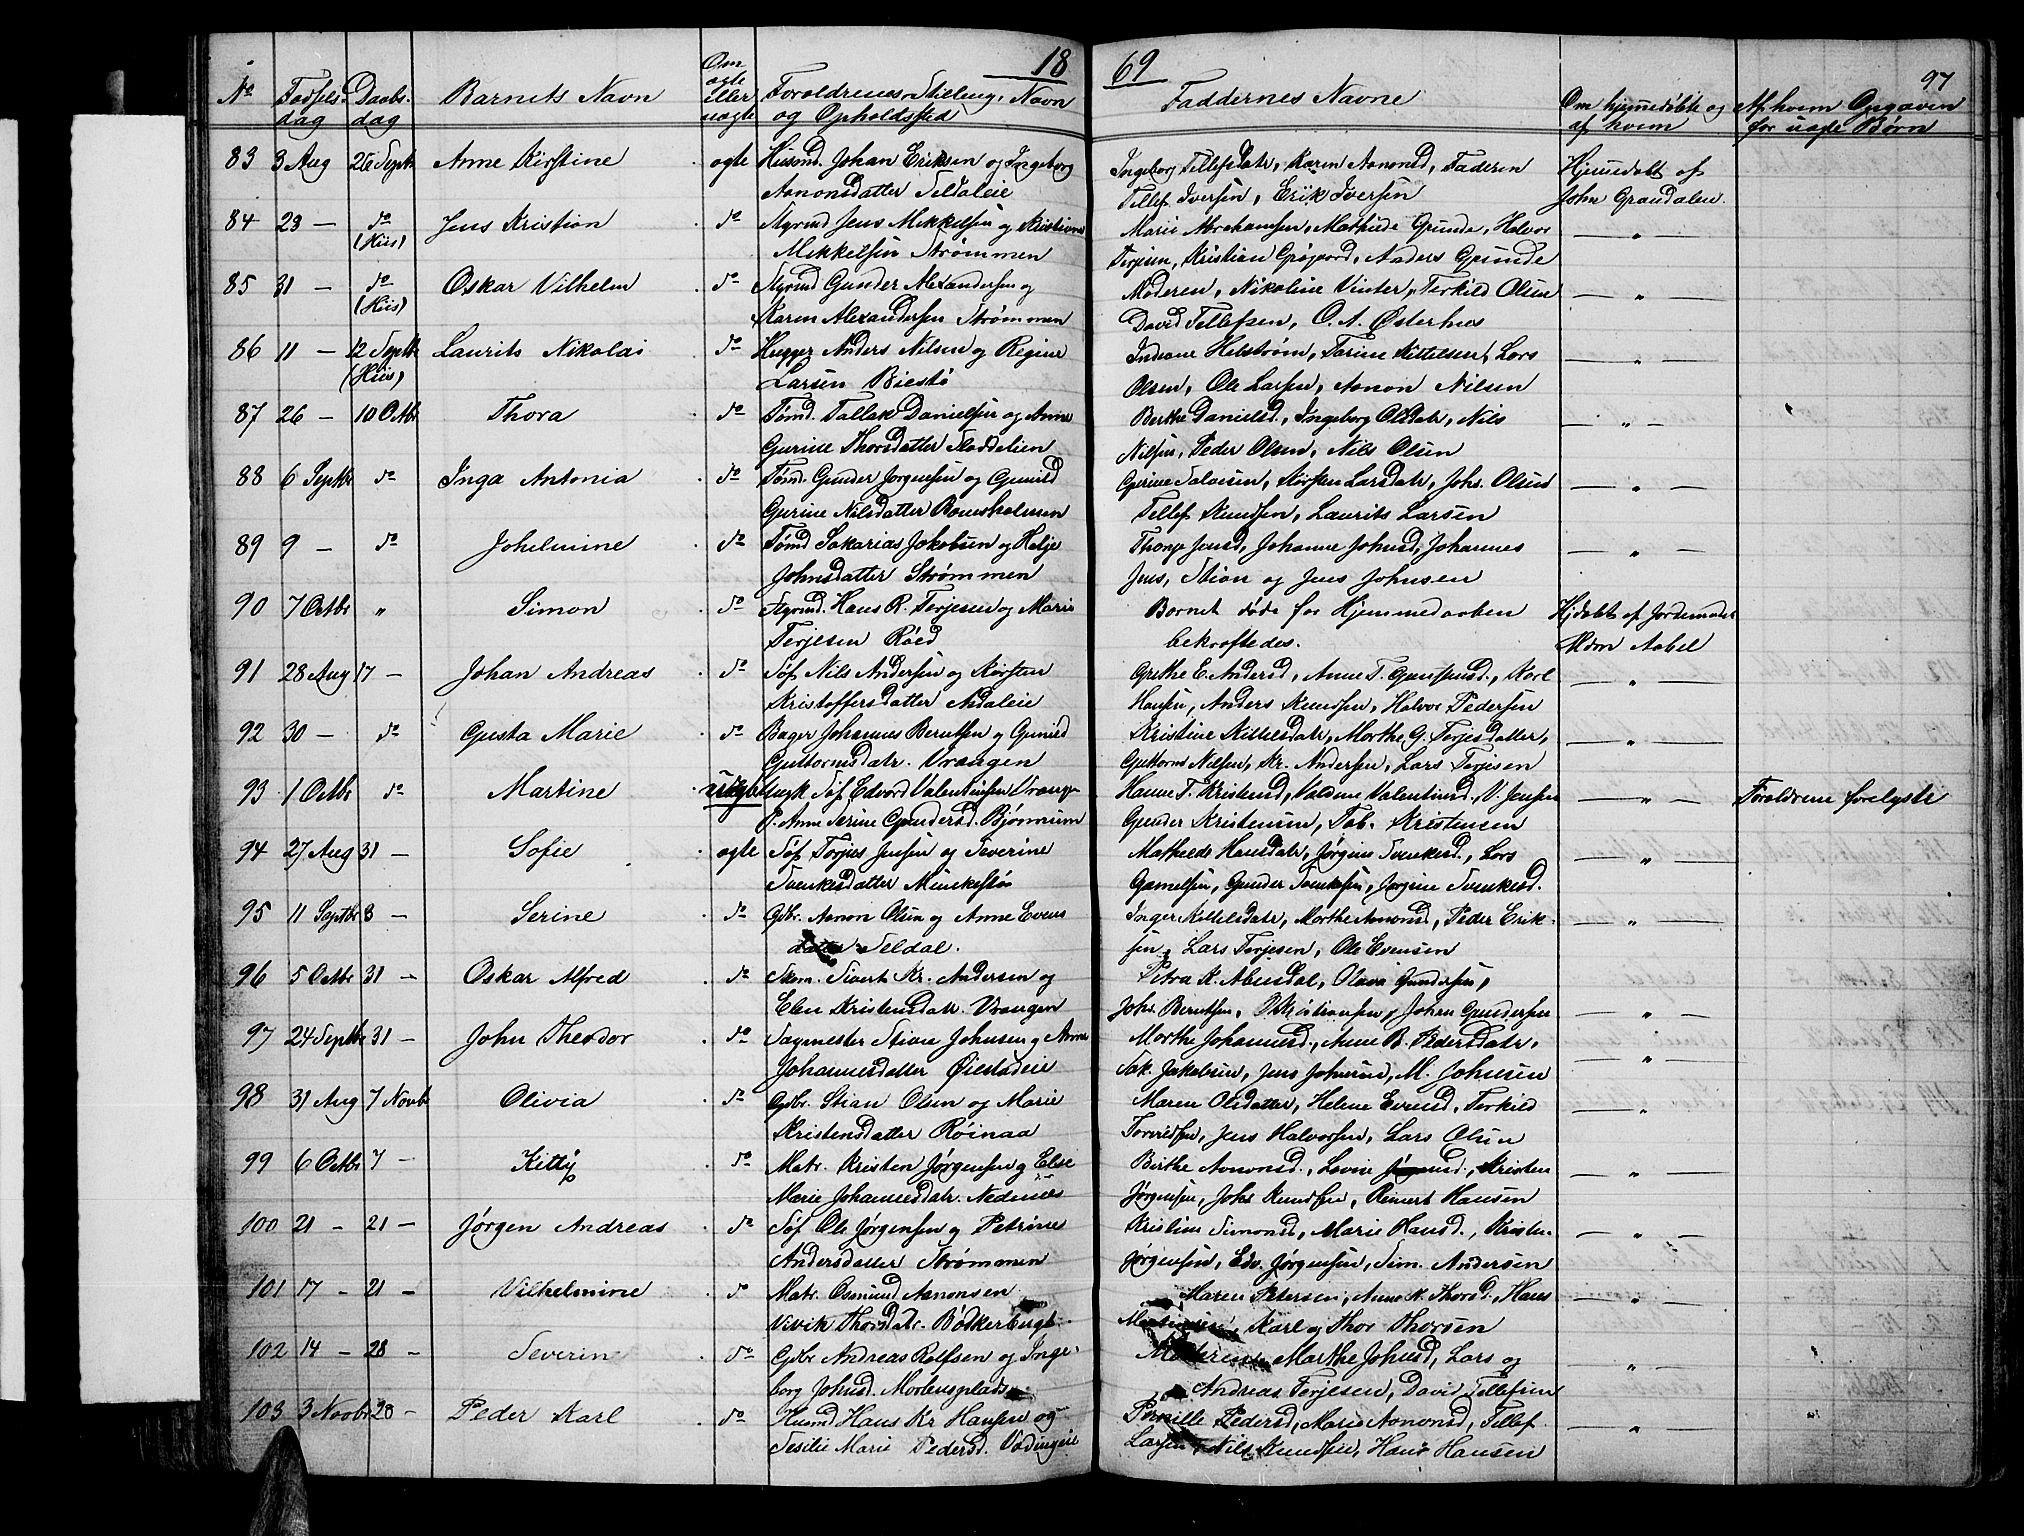 18 69 97
No Fødsels- Daabs- Barnets Navn Om ægte eller uægte Forældrenes Stilling, Navn Faddernes Navne Om hjemmedøbte og Af hvem Opgaven
dag dag og Opholdssted af hvem for uægte Børn
83 3 Aug 26 Septbr Anne Kirstine ægte Husmd. Johan Eriksen og Ingeborg Ingeborg Tellefsdatr, Karen Aanonsd, Faderen Hjemdøbt af
Aanonsdatter Seldaleie Tellef Iversen, Erik Iversen John Grandalen.
84 23 — do Jens Kristian do Styrmd Jens Mikkelsen og Kristiane Marie Abrahamsen, Mathilde Grunde, Halvor — " —
(Hiis) Mikkelsen Strømmen Terjesen, Kristian Grøgaard, Anders Grunde
85 31 — do Oskar Vilhelm do Styrmd Gunder Alexandersen og Moderen, Nikoline Vinter, Terkild Olsen — " —
(Hiis) Karen Alexandersen Strømmen David Tellefsen, O. A. Østerhus
86 11 — 12 Septbr Laurits Nikolai do Hugger Anders Nilsen og Regine Indiane Helstrøm, Tarine Kittelsen, Lars — " —
(Hiis) Larsen Biestø Olsen, Ole Larsen, Aanon Nilsen
87 26 — 10 Octbr Thora do Tømd. Tallak Danielsen og Anne Berthe Danielsd., Ingeborg Olsdatr, Nils — " —
Gurine Thorsdatter Stoddelien Nilsen, Peder Olsen, Nils Olsen
88 6 Septbr do Inga Antonia do Tømd. Gunder Jørgensen og Gunild Gurine Salvesen, Kirsten Larsdatr, Johs. Olsen — " —
Gurine Nilsdatter Bomsholmen Tellef Knudsen, Laurits Larsen
89 9 — do Johelmine do Tømd Sakarias Jakobsen og Helje Thonje Jensd, Johanne Johnsd, Johannes — " —
Johnsdatter Strømmen Jens, Stian og Jens Johnsen
90 7 Octbr " Simon do Styrmd. Hans R. Terjesen og Marie Barnet døde før Hjemmedaaben Hjdøbt af Jordemoder
Terjesen Røed bekræftedes. Mdm Aabel
91 28 Aug 17 — Johan Andreas do Søf Nils Andersen og Kirsten Grethe E. Andersd, Anne T. , Karl — " —
Kristoffersdatter Asdaleie Hansen, Anders Knudsen, Halvor Pedersen
92 30 — do Gusta Marie do Bager Johannes Berntsen og Gunild Kristine Kittelsdatr, Marthe G. Terjesdatter, — " —
Guttormsdatr. Vrængen Guttorm Nilsen, Kr. Andersen, Lars Terjesen
93 1 Octbr do Martine uægte Ungk Søf Edvard Valentinsen Vrænge Hanne T. Kristensd, Valdine Valentinsd, V. Jensen — " — Forældrene forelyste
P. Anne Serine Gundersd. Bjønnum Gunder Kristensen, Tob. Kristensen
94 27 Aug 31 — Sofie ægte Søf Terjes Jensen og Severine Mathilde Hansdatr, Jørgine Svenkesd., Lars — " —
Svenkesdatter Minkestø Gamelsen, Gunder Svenkesen, Jørgine Svenkesd.
95 11 Septbr 3 — Serine do Gdbr. Aanon Olsen og Anne Evens Inger Kittelsdatr, Marthe Aanonsd, Peder Erik- — " —
datter Seldal. sen, Lars Terjesen, Ole Evensen
96 5 Octbr 31 — Oskar Alfred do Skom. Sivert Kr. Andersen og Petra K. Abendal, Olava Gundersen,
Elen Kristensdatr. Vrængen Johs. Berntsen, O. Kristiansen, Johan Gundersen — " —
97 24 Septbr 31 — John Theodor do Sagmester Stian Johnsen og Anne Marthe Johannesd., Anne B. Pedersdatr, — " —
Johannesdatter Øiestadeie Sak. Jakobsen, Jens Johnsen, M. Johnsen
98 31 Aug 7 Novbr Olivia do Gdbr. Stian Olsen og Marie Maren Olsdatter, Helene Evensd, Terkild — " —
Kristensdatter Røinaa Torvildsen, Jens Halvorsen, Lars Olsen
99 6 Octbr 7 — Kitty do Matr. Kristen Jørgensen og Else Birthe Aanonsd., Lovise Jørgensd., Kristen — " —
Marie Johannesdatr. Nedenæs Jørgensen, Johs Knudsen, Reinert Hansen
100 21 — 21 — Jørgen Andreas do Søf Ole Jørgensen og Petrine Kristine Simonsd, Marie Hansd., Kristen — " —
Andersdatter Strømmen Jørgensen, Edv. Jørgensen, Sim. Andersen
101 17 — 21 — Vilhelmine do Matr. Osmund Aanonsen Maren Petersen, Anne K. Thorsd, Hans — " —
Vivik Thorsdatr. Bødkerbugt Karl og Thor Thorsen
102 14 — 28 — Severin do Gdbr Andreas Rolfsen og Inge- Moderen, Marthe Johnsd, Lars og "
borg Johnsd. Mortensplads Andreas Terjesen, David Tellefsen
103 3 Novbr 28 — Peder Karl do Husmd Hans Kr Hansen og Pernille Pedersd, Marie Aanonsd, Tellef "
Sesilie Marie Pedersd. Vødingeie Larsen, Nils Knudsen, Hans Hansen